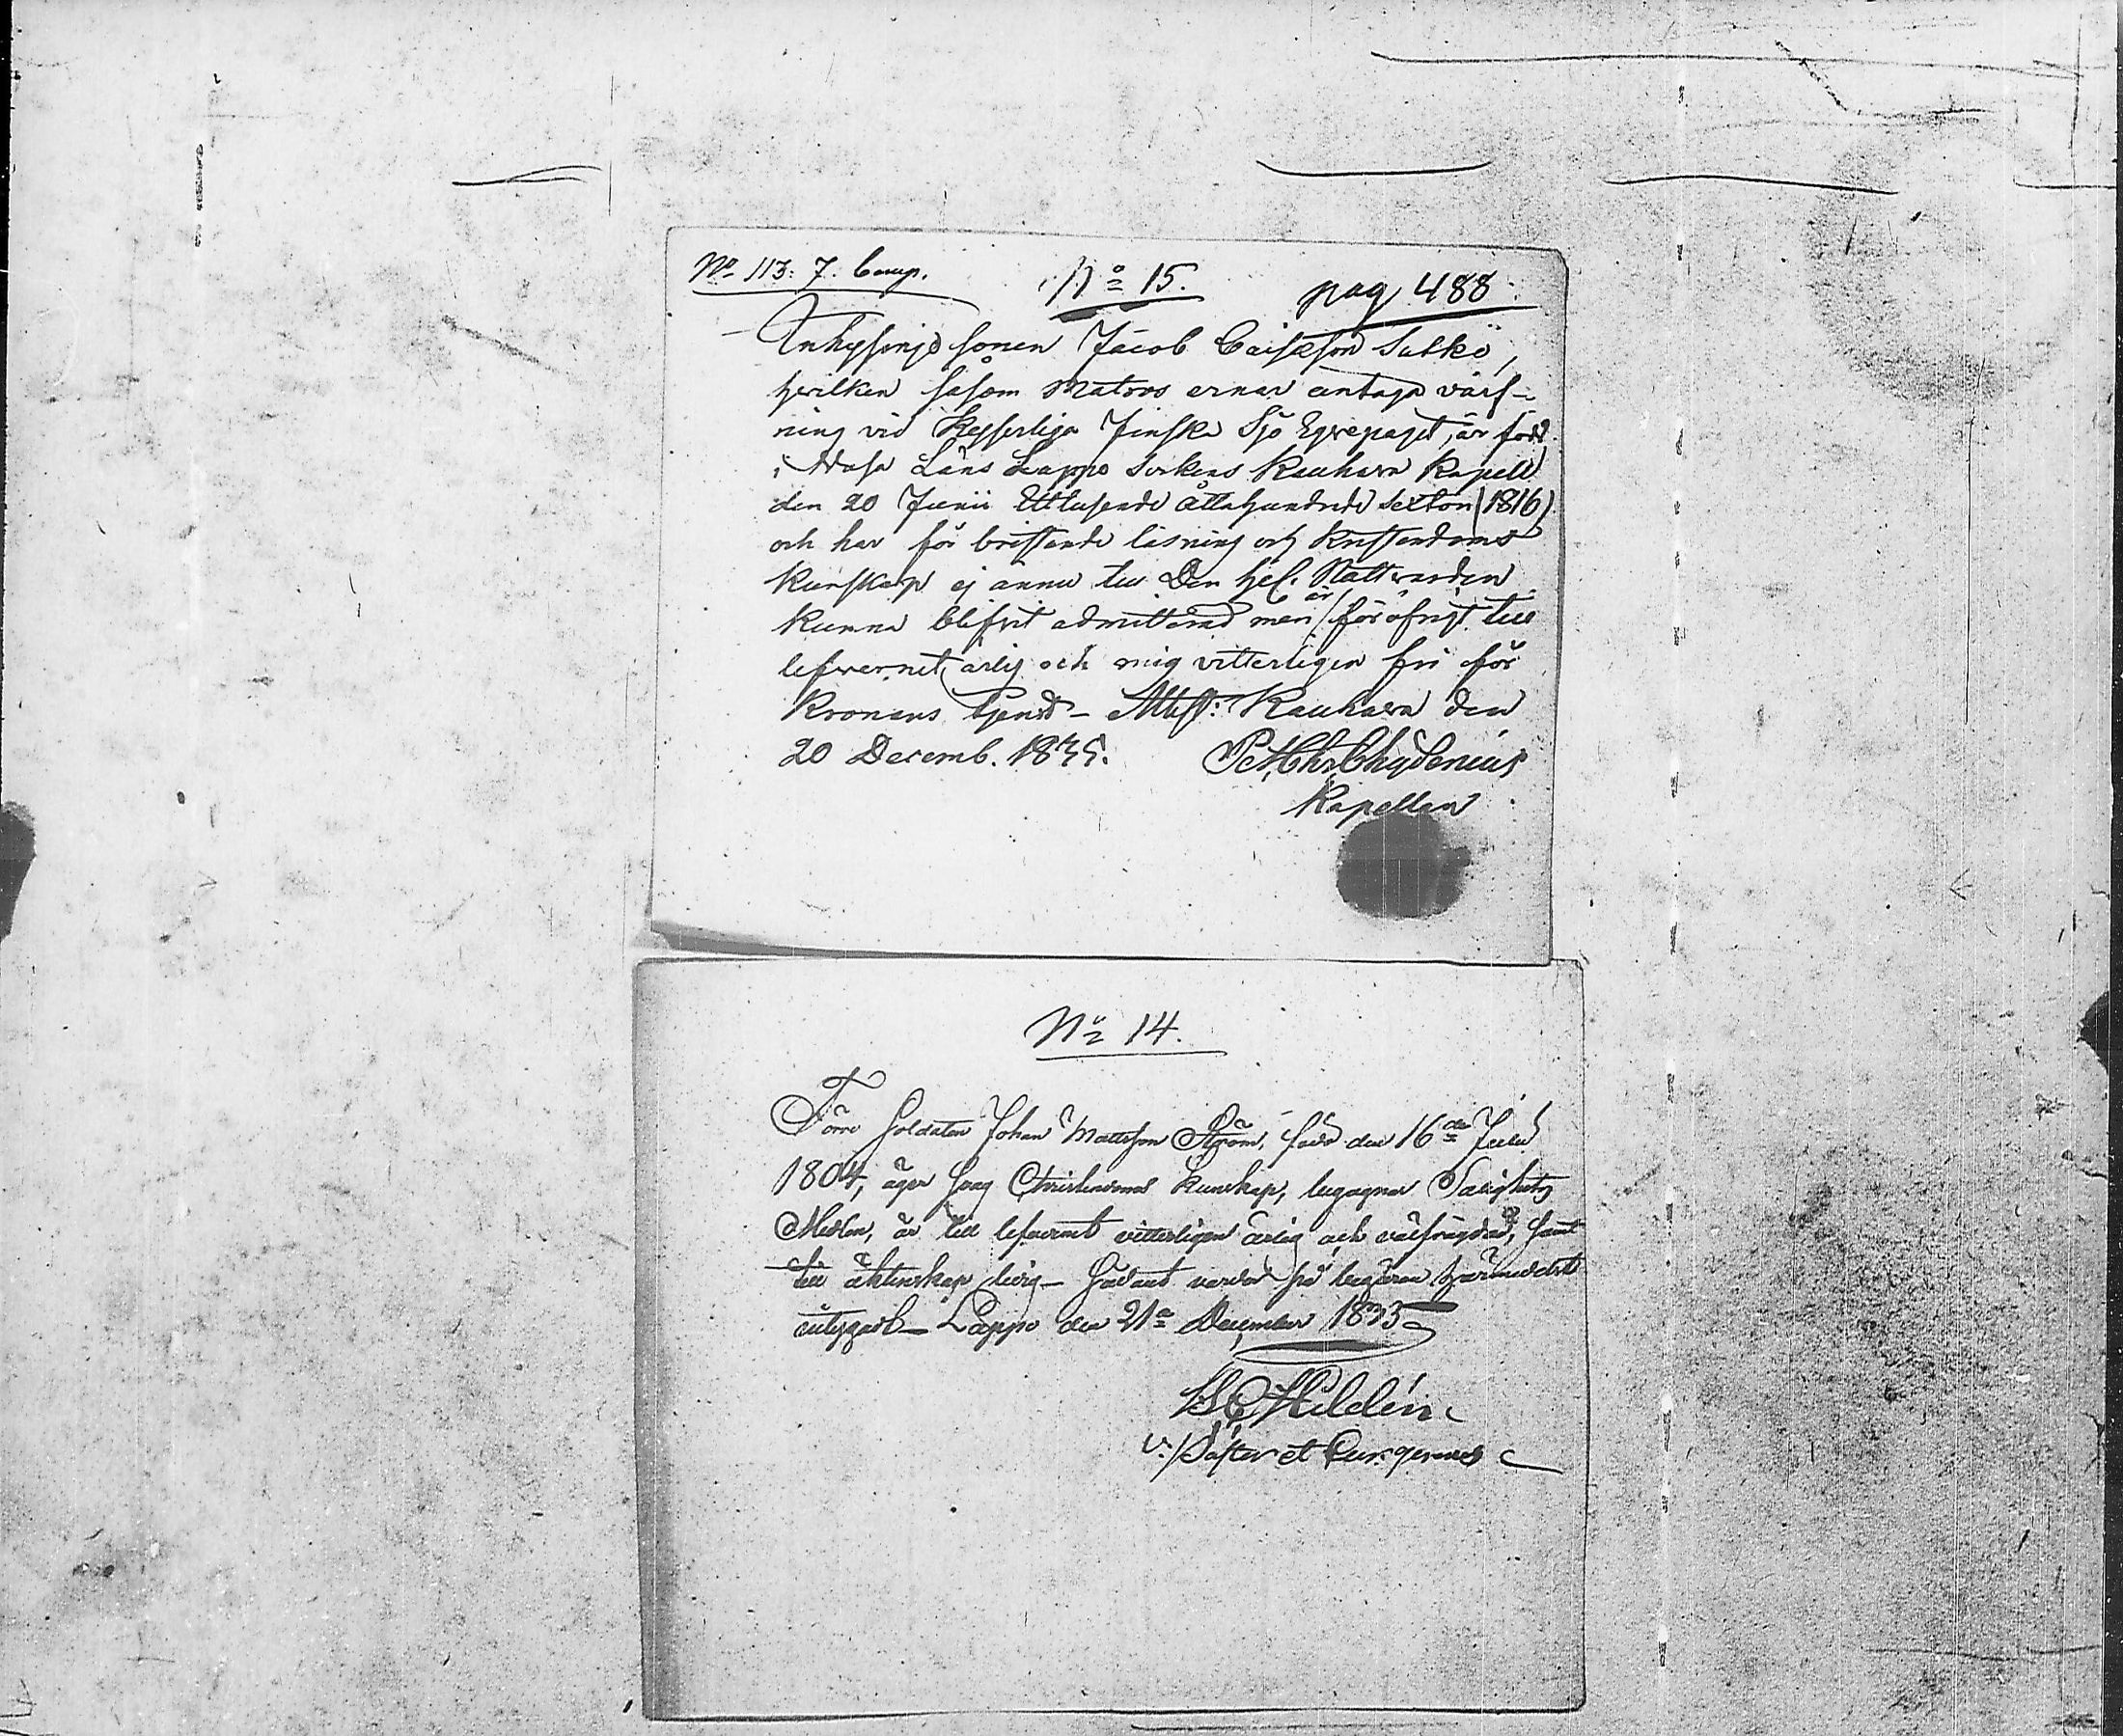 No 113. 7. Comp.
No 15.
pag 488.
Inhysings sonen Jacob Caisason Sulkō,
hvilken såsom Matros ernar antaga värf-
ning vid Kejserliga Finska Sjö Eqvepaget, är född
i Wasa Läns Lappo Sockens Kauhava Kapell
den 20 Junii Ettusende Åttahundrade Sexton (1816)
och har för bristande läsning och Kristendoms
Kunskap ej ännu till Den hel. Nattvarden
kunna blifvit admitterad men är föröfrigt till
lefvernet ärlig och mig vitterligen fri för
Kronans tjenst - Attest: Kauhava den
20 Decemb. 1835. Pet. Chr. Chydenius
Kapellan
No 14.
Förre Soldaten Johan Mattsson Ström, född den 16de Julii
1804, äger svag Christendoms kunskap, begagnar Salighets
Medlen, är till lefvernet vitterligen ärlig och välfrägdad, samt
till äktenskap ledig - Sådant varder på begäran härmedelst
intygadt - Lappo den 21a December 1833
Hildén
v. Pastor et Cur. gerens